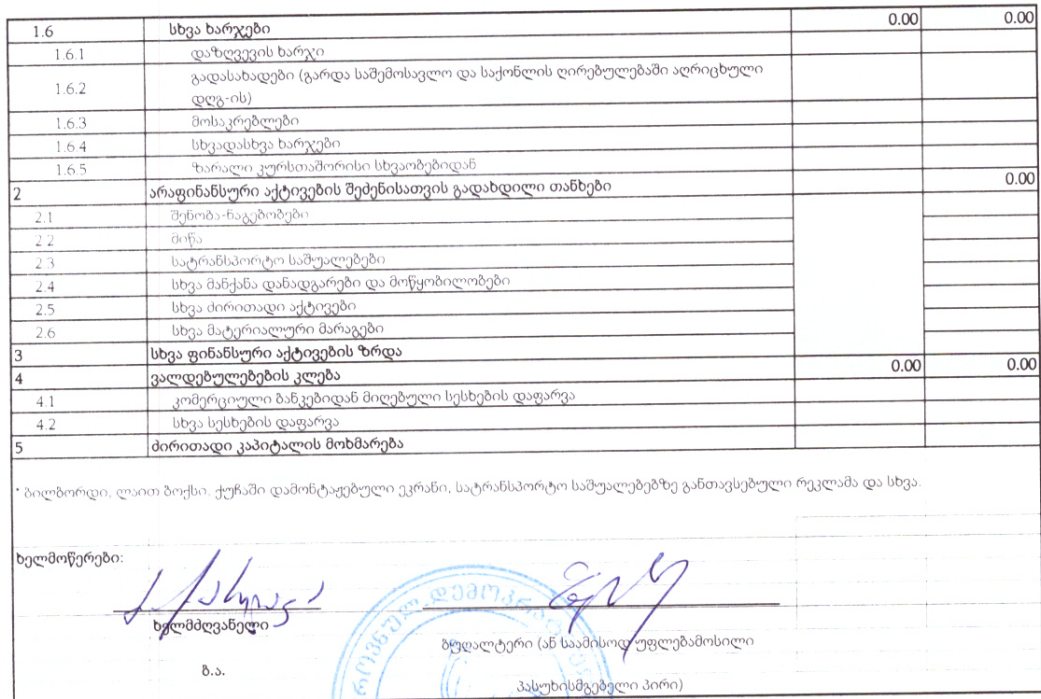 1.6 სხვა ხარჯები 0.00 0.00
1.6.1 დაზღვევის ხარჯი
გადასახადები (გარდა საშემოსავლო და საქონლის ღირებულებაში აღრიცხული
1.6.2
დღგ-ის)
1.6.3 მოსაკრებლები
1.6.4 სხვადასხვა ხარჯები
1.6.5 ზარალი კურსთაშორისი სხვაობებიდან
2 არაფინანსური აქტივების შეძენისათვის გადახდილი თანხები 0.00
2.1 შენობა-ნაგებობები
2.2 მიწა
2.3 სატრანსპორტო საშუალებები
2.4 სხვა მანქანა დანადგარები და მოწყობილობები
2.5 სხვა ძირითადი აქტივები
2.6 სხვა მატერიალური მარაგები
3 სხვა ფინანსური აქტივების ზრდა
4 ვალდებულებების კლება 0.00 0.00
4.1 კომერციული ბანკებიდან მიღებული სესხების დაფარვა
4.2 სხვა სესხების დაფარვა
5 ძირითადი კაპიტალის მოხმარება
* ბილბორდი, ლაით ბოქსი, ქუჩაში დამონტაჟებული ეკრანი, სატრანსპორტო საშუალებებზე განთავსებული რეკლამა და სხვა.
ხელმოწერები:
ხელმძღვანელი
ბუღალტერი (ან საამისოდ უფლებამოსილი
ბ.ა.
პასუხისმგებელი პირი)